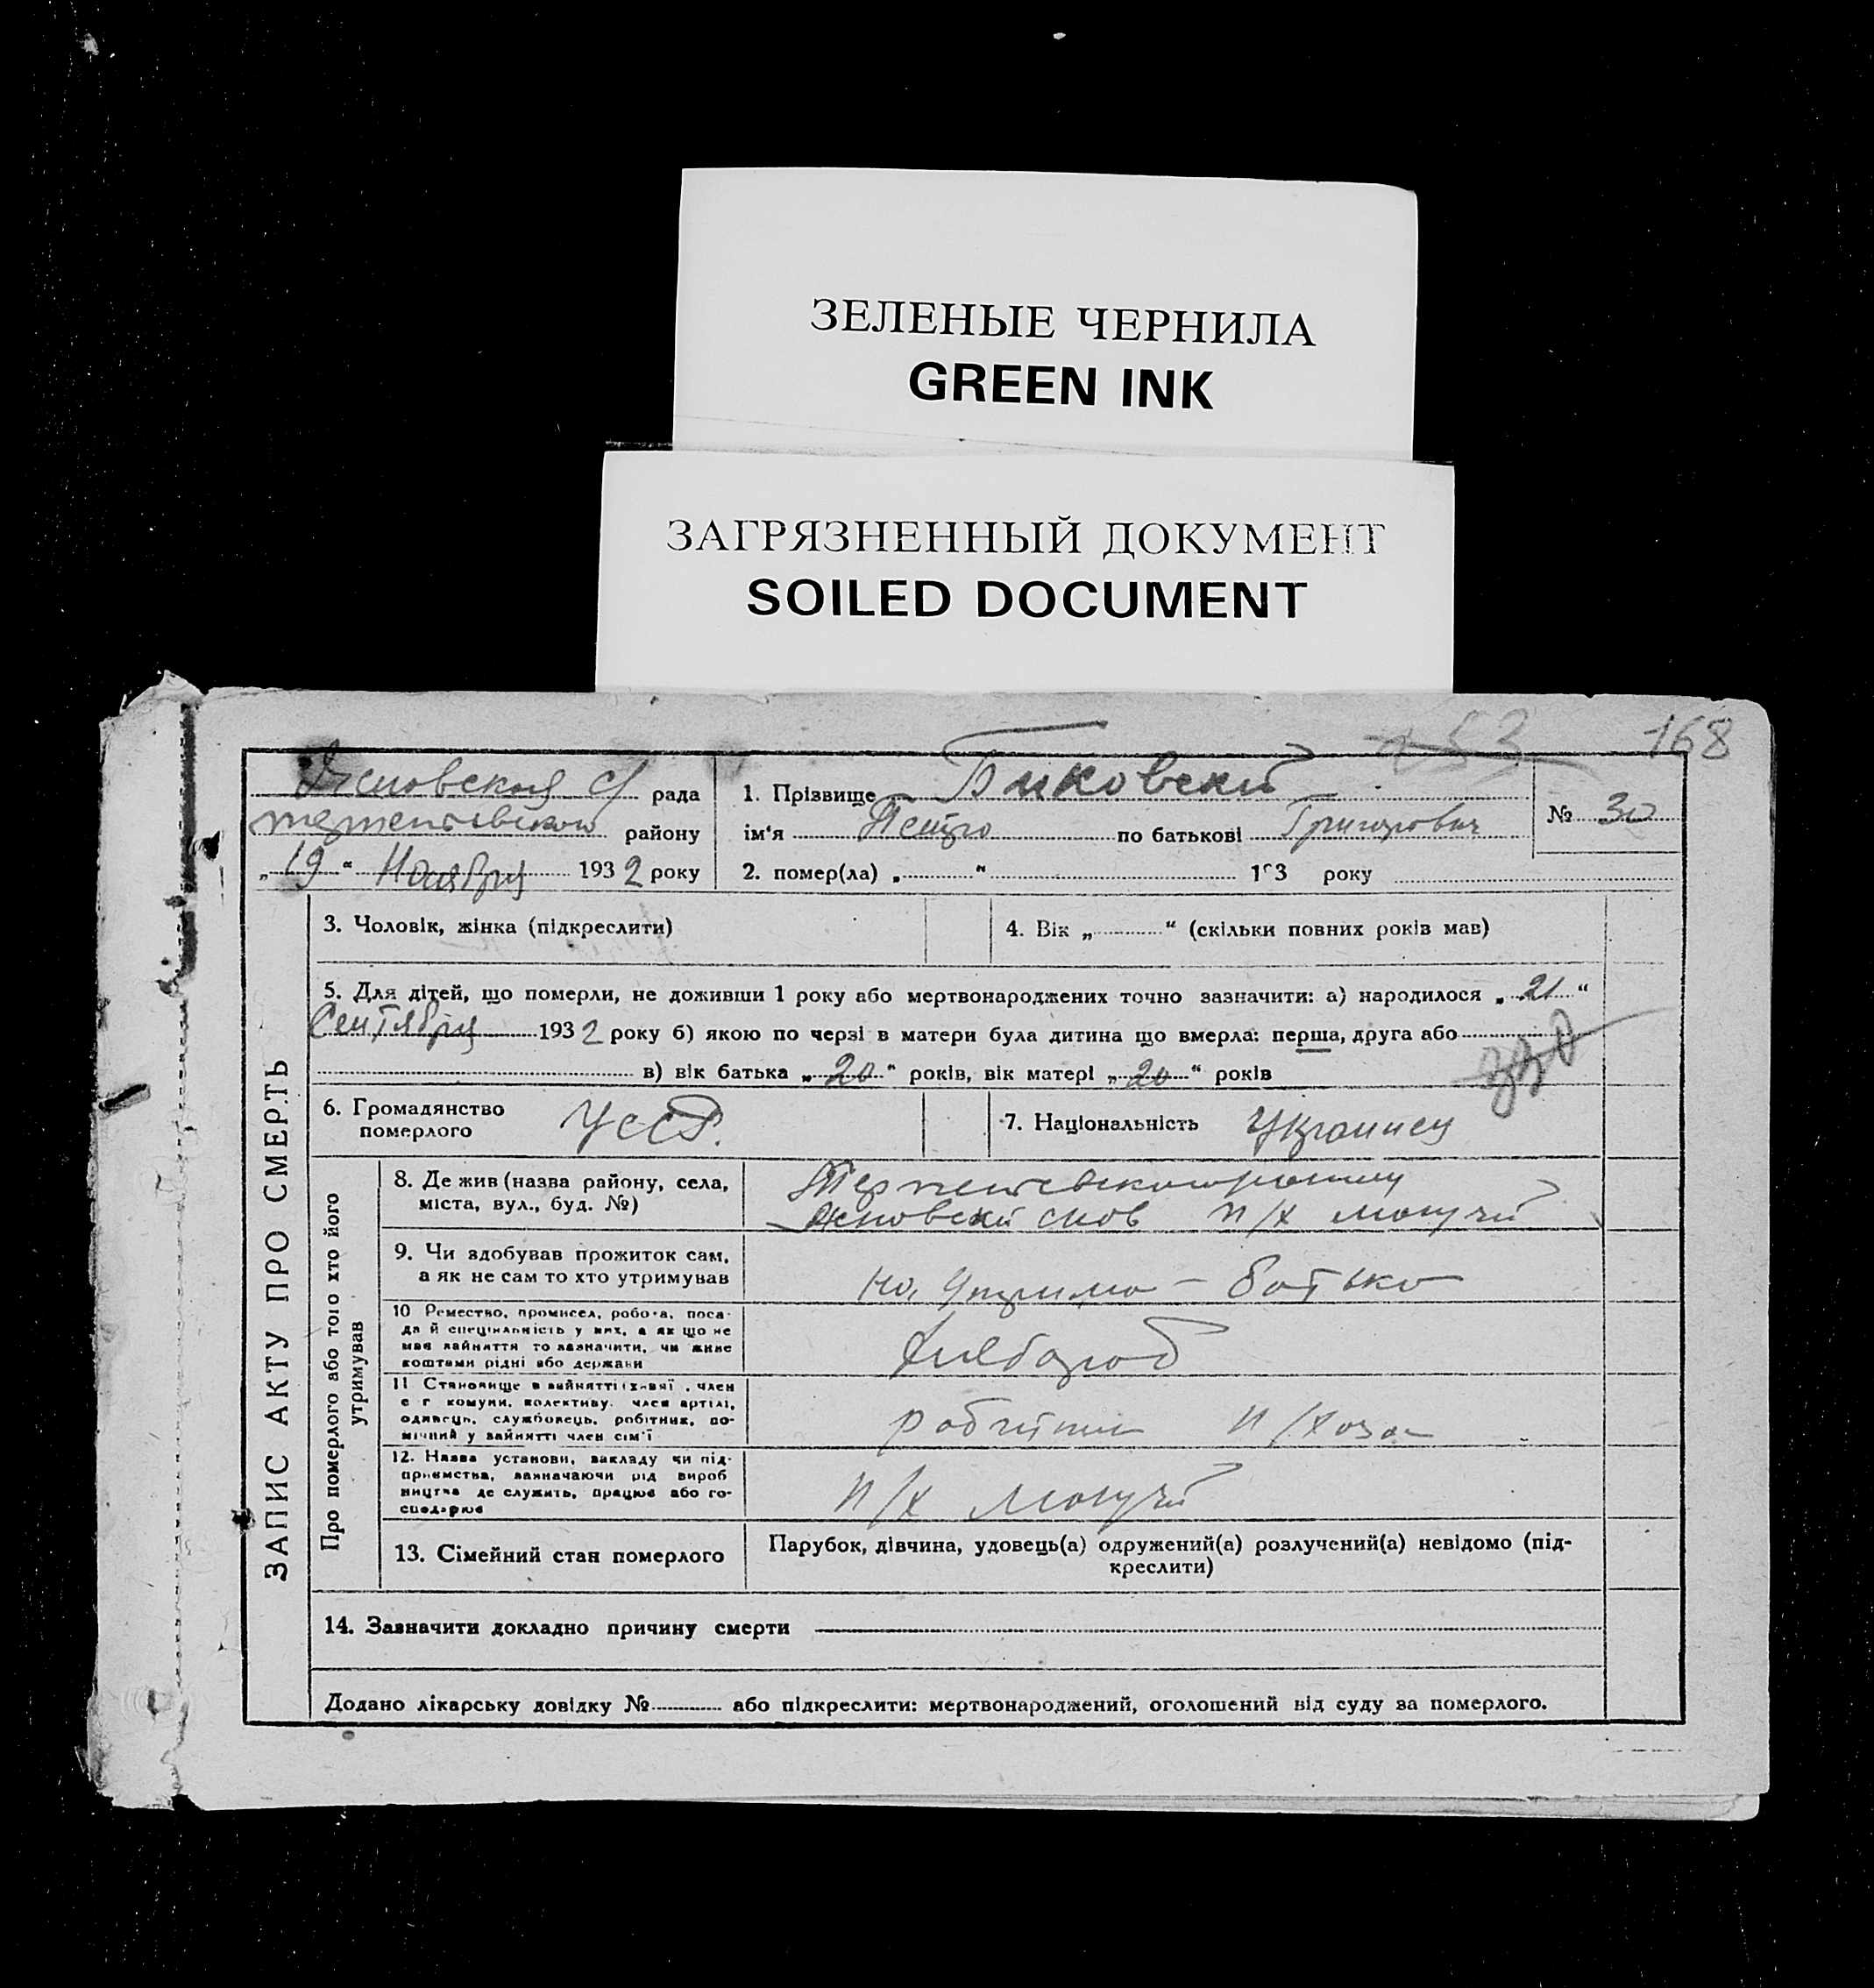 ЗЕЛЕНЫЕ ЧЕРНИЛА
GREEN INK
ЗАГРЯЗНЕННЫЙ ДОКУМЕНТ
SOILED DOCUMENT
53 168
рада
району
„19“ Ноября 1932 року
1. Прізвище Биковский
ім'я Петро по батькові Григорович
№ 30
2. помер(ла) „ “ 193 року
ЗАПИС АКТУ ПРО СМЕРТЬ
3. Чоловік, жінка (підкреслити)
4. Вік „ “ (скільки повних років мав)
5. Для дітей, що померли, не доживши 1 року або мертвонароджених точно зазначити: а) народилося „21“
Сентября 1932 року б) якою по черзі в матери була дитина що вмерла: перша, друга або
в) вік батька „20“ років, вік матері „20“ років
6. Громадянство
померлого УССР.
7. Національність Украинец
Про померлого або того хто його
утримував
8. Де жив (назва району, села,
міста, вул., буд. №)
п/х могучий
9. Чи здобував прожиток сам,
а як не сам то хто утримував
батько
10 Ремество, промисел, робота, поса-
да й спеціяльність у них, а як що не
мав зайняття то зазначити, чи живе
коштами рідні або держави
Хлебороб
11 Становище в зайнятті (х-зяї , член
с г комуни, колективу, член артілі,
одинець, службовець, робітник, по-
мічний у зайнятті член сім'ї
12. Назва установи, закладу чи під-
приємства, зазначаючи рід вироб
ництва де служить, працює або го-
сподарює
п/х могучий
13. Сімейний стан померлого
Парубок, дівчина, удовець(а) одружений(а) розлучений(а) невідомо (під-
креслити)
14. Зазначити докладно причину смерти
Додано лікарську довідку № або підкреслити: мертвонароджений, оголошений від суду за померлого.